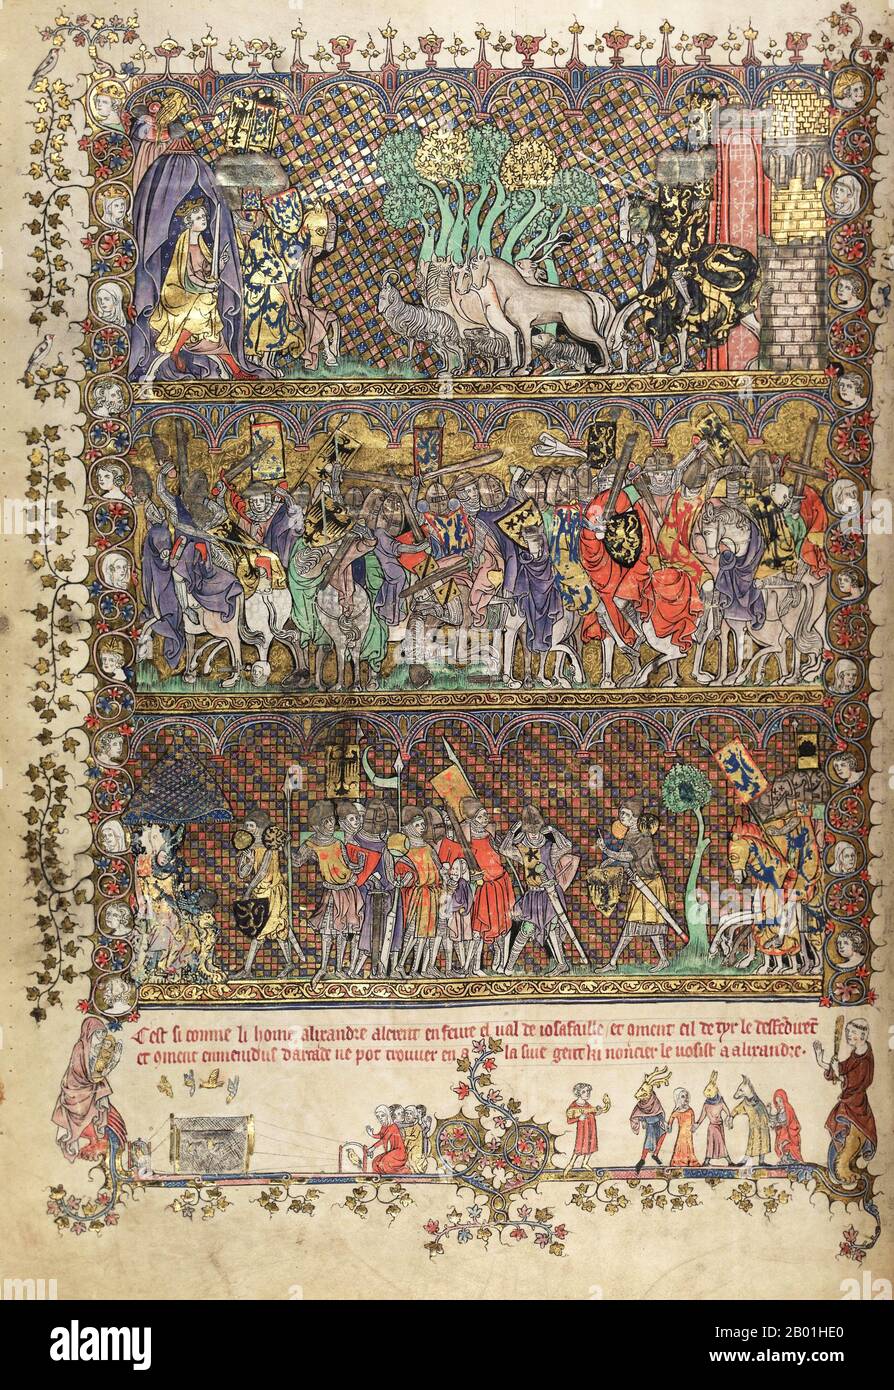 C'est si comme li home alixandre alerent en feure el ual de iosafaille / et oment cil de tyr le desfedirēt
et oment emmenidus darcade ne pot trouuer en
la siue gent ki noncier le uosist a alixandre.
alamy
Image ID: 2B01HE0
www.alamy.com